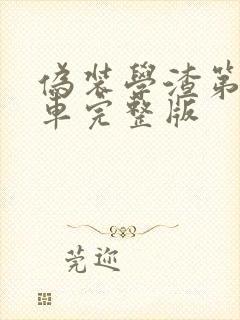 偽裝學渣第
車完整版
莞迩